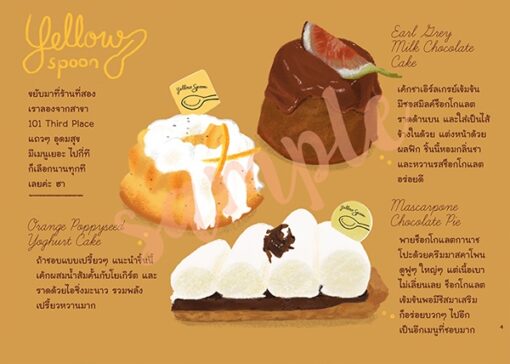 Yellow
spoon
ขยับมาที่ร้านที่สอง
เราลองจากสาขา
101 Third Place
แถวๆ อุดมสุข
มีเมนูเยอะ ไปกี่ที
ก็เลือกนานทุกที
เลยค่ะ ฮา
Orange Poppyseed
Yoghurt Cake
ถ้าชอบแบบเปรี้ยวๆ แนะนำชิ้นนี้
เค้กผสมน้ำส้มคั้นกับโยเกิร์ต และ
ราดด้วยไอซิ่งมะนาว รวมพลัง
เปรี้ยวหวานมาก
Yellow Spoon
Yellow Spoon
Earl Grey
Milk Chocolate
Cake
เค้กชาเอิร์ลเกรย์เข้มข้น
มีซอสมิลค์ช็อกโกแลต
ราดด้านบน และใส่เป็นไส้
ข้างในด้วย แต่งหน้าด้วย
ผลฟิก ชิ้นนี้หอมกลิ่นชา
และหวานรสช็อกโกแลต
อร่อยดี
Mascarpone
Chocolate Pie
พายช็อกโกแลตกานาช
โปะด้วยครีมมาสคาโพน
ดูฟูๆ ใหญ่ๆ แต่เนื้อเบา
ไม่เลี่ยนเลย ช็อกโกแลต
เข้มข้นพอมีชีสมาเสริม
ก็อร่อยบวกๆ ไปอีก
เป็นอีกเมนูที่ชอบมาก
sample